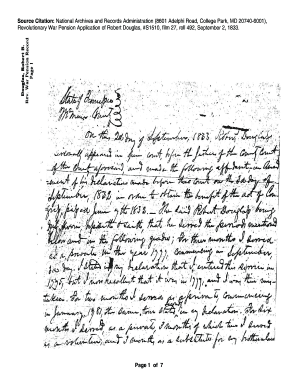 Source Citation: National Archives and Records Administration (8601 Adelphi Road, College Park, MD 20740-6001),
Revolutionary War Pension Application of Robert Douglas, #S1810, film 27, roll 492, September 2, 1833.
Douglas, Robert B.
Rev. War Pension Record
Page 1
State of Tennessee
County
On this 2nd day of September, 1833, Robert Douglas
personally appeared in open court, before the Justices of the County Court
of the County aforesaid and made the following
ment of his declaration made before this court on the day of
September, 1832 in order to obtain the benefit of the act of Con-
gress, passed June 7th 1832. The said Robert Douglas being
oath that he served the periods mentioned
below and in the following grades; For three months I served
as a private in the year 1777, commencing in September,
day, I stated in my declaration that I entered this service in
1775, but I now recollect that it was in 1777, and I was then mis-
taken. For two months I served as a private, commencing
in January, 1781, the same, as in my declaration. For six
months I served as a private, 3 months of which time I served
as a volunteer, and 3 months, as a substitute for my brother
Page 1 of 7